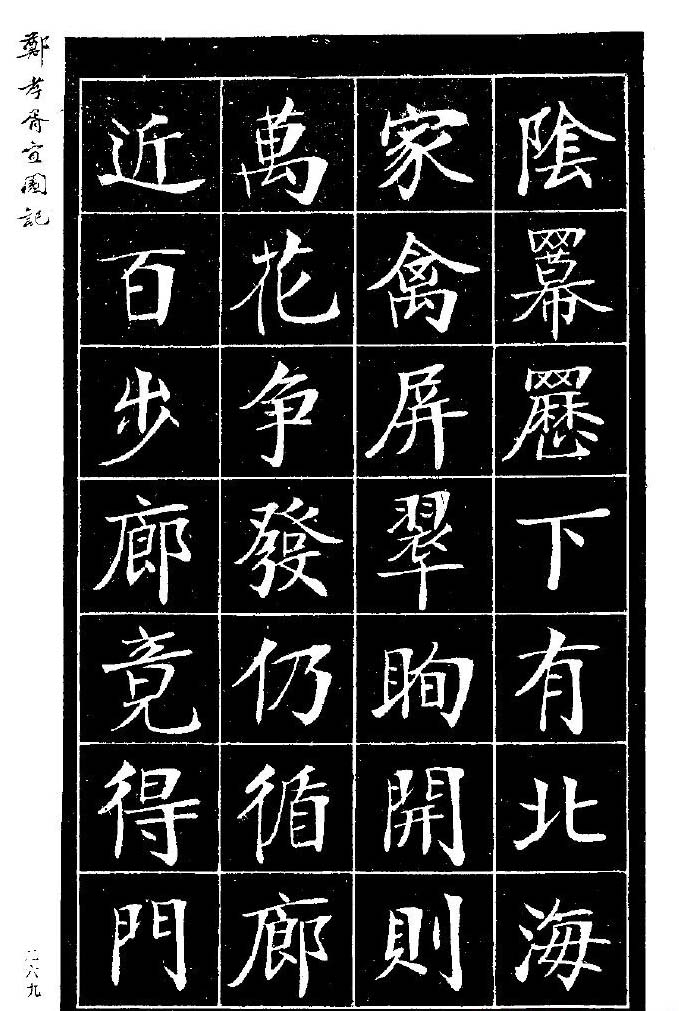 陰羃䍥下有北海
家禽屏翠眴開則
萬花争發仍循廊
近百步廊竟得門
鄭孝胥宜園記